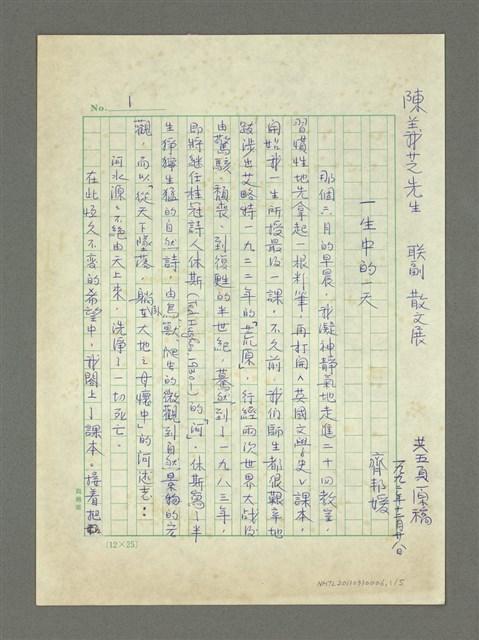 陳義芝先生　聯副　散文展
共五頁原稿
一九九二年十二月廿八日
No. 1
一生中的一天
齊邦媛
那個六月的早晨，我凝神靜氣地走進二十四教室，
習慣性地先拿起一根粉筆，再打開《英國文學史》課本，
開始我一生所授最後一課，不久前，我們師生都很艱辛地
跋涉過艾略特一九二二年的「荒原」，行經兩次世界大戰後
由驚駭、頹喪、到復甦的半世紀，驀然到了一九八三年，
即將繼任桂冠詩人休斯(Ted Hughes, 1930-)的「河」，休斯寫了半
生猙獰生猛的自然詩，由鳥獸、爬虫的微觀到自然景物的宏
觀，而以「從天下墜落，躺臥大地之母懷中」的河述志：
河水源源不絕由天上來，洗淨了一切死亡。
在此恆久不變的希望中，我閤上了課本。接着把
(12×25)
NMTL20110910006,1/5